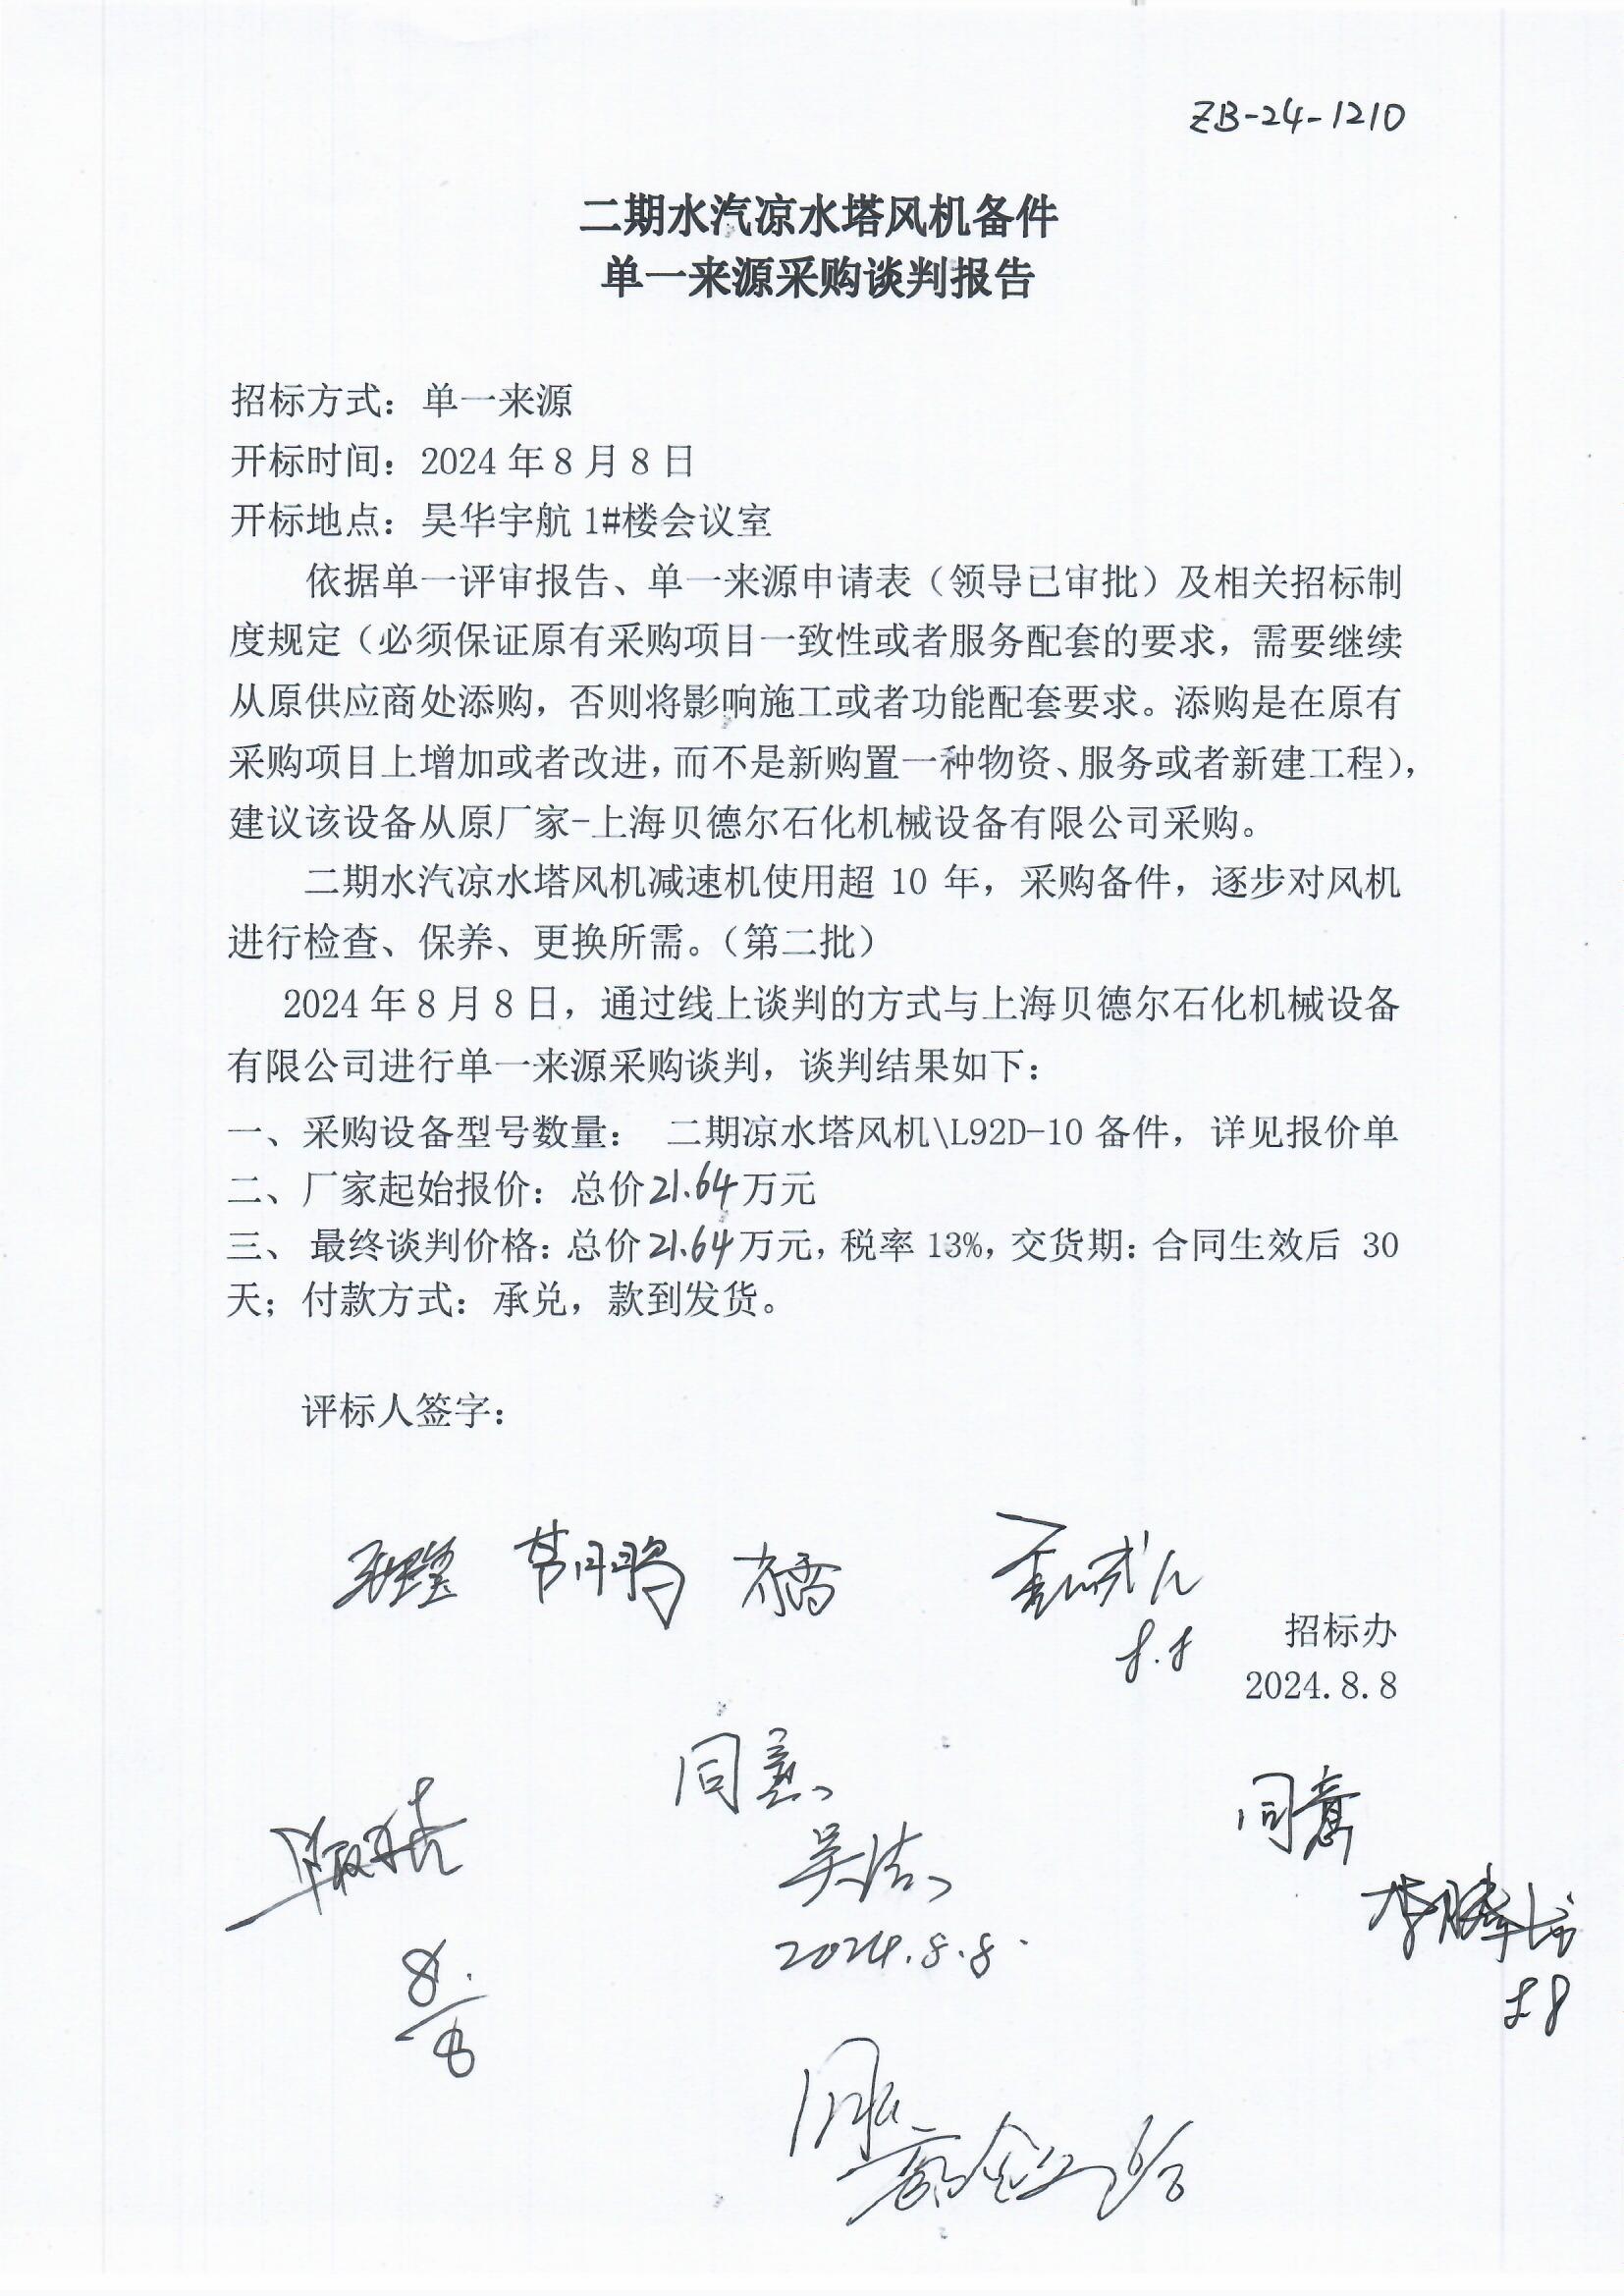 ZB-24-1210
二期水汽凉水塔风机备件
单一来源采购谈判报告
招标方式：单一来源
开标时间：2024年8月8日
开标地点：昊华宇航1#楼会议室
依据单一评审报告、单一来源申请表（领导已审批）及相关招标制
度规定（必须保证原有采购项目一致性或者服务配套的要求，需要继续
从原供应商处添购，否则将影响施工或者功能配套要求。添购是在原有
采购项目上增加或者改进，而不是新购置一种物资、服务或者新建工程），
建议该设备从原厂家-上海贝德尔石化机械设备有限公司采购。
二期水汽凉水塔风机减速机使用超 10 年，采购备件，逐步对风机
进行检查、保养、更换所需。（第二批）
2024年8月8日，通过线上谈判的方式与上海贝德尔石化机械设备
有限公司进行单一来源采购谈判，谈判结果如下：
一、采购设备型号数量： 二期凉水塔风机\L92D-10备件，详见报价单
二、厂家起始报价：总价21.64万元
三、 最终谈判价格：总价21.64万元，税率13%，交货期：合同生效后 30
天；付款方式：承兑，款到发货。
评标人签字：
8.8
招标办
2024.8.8
同意
吴洁
2024.8.8.
同意
李腾
8.8
8/8
同意